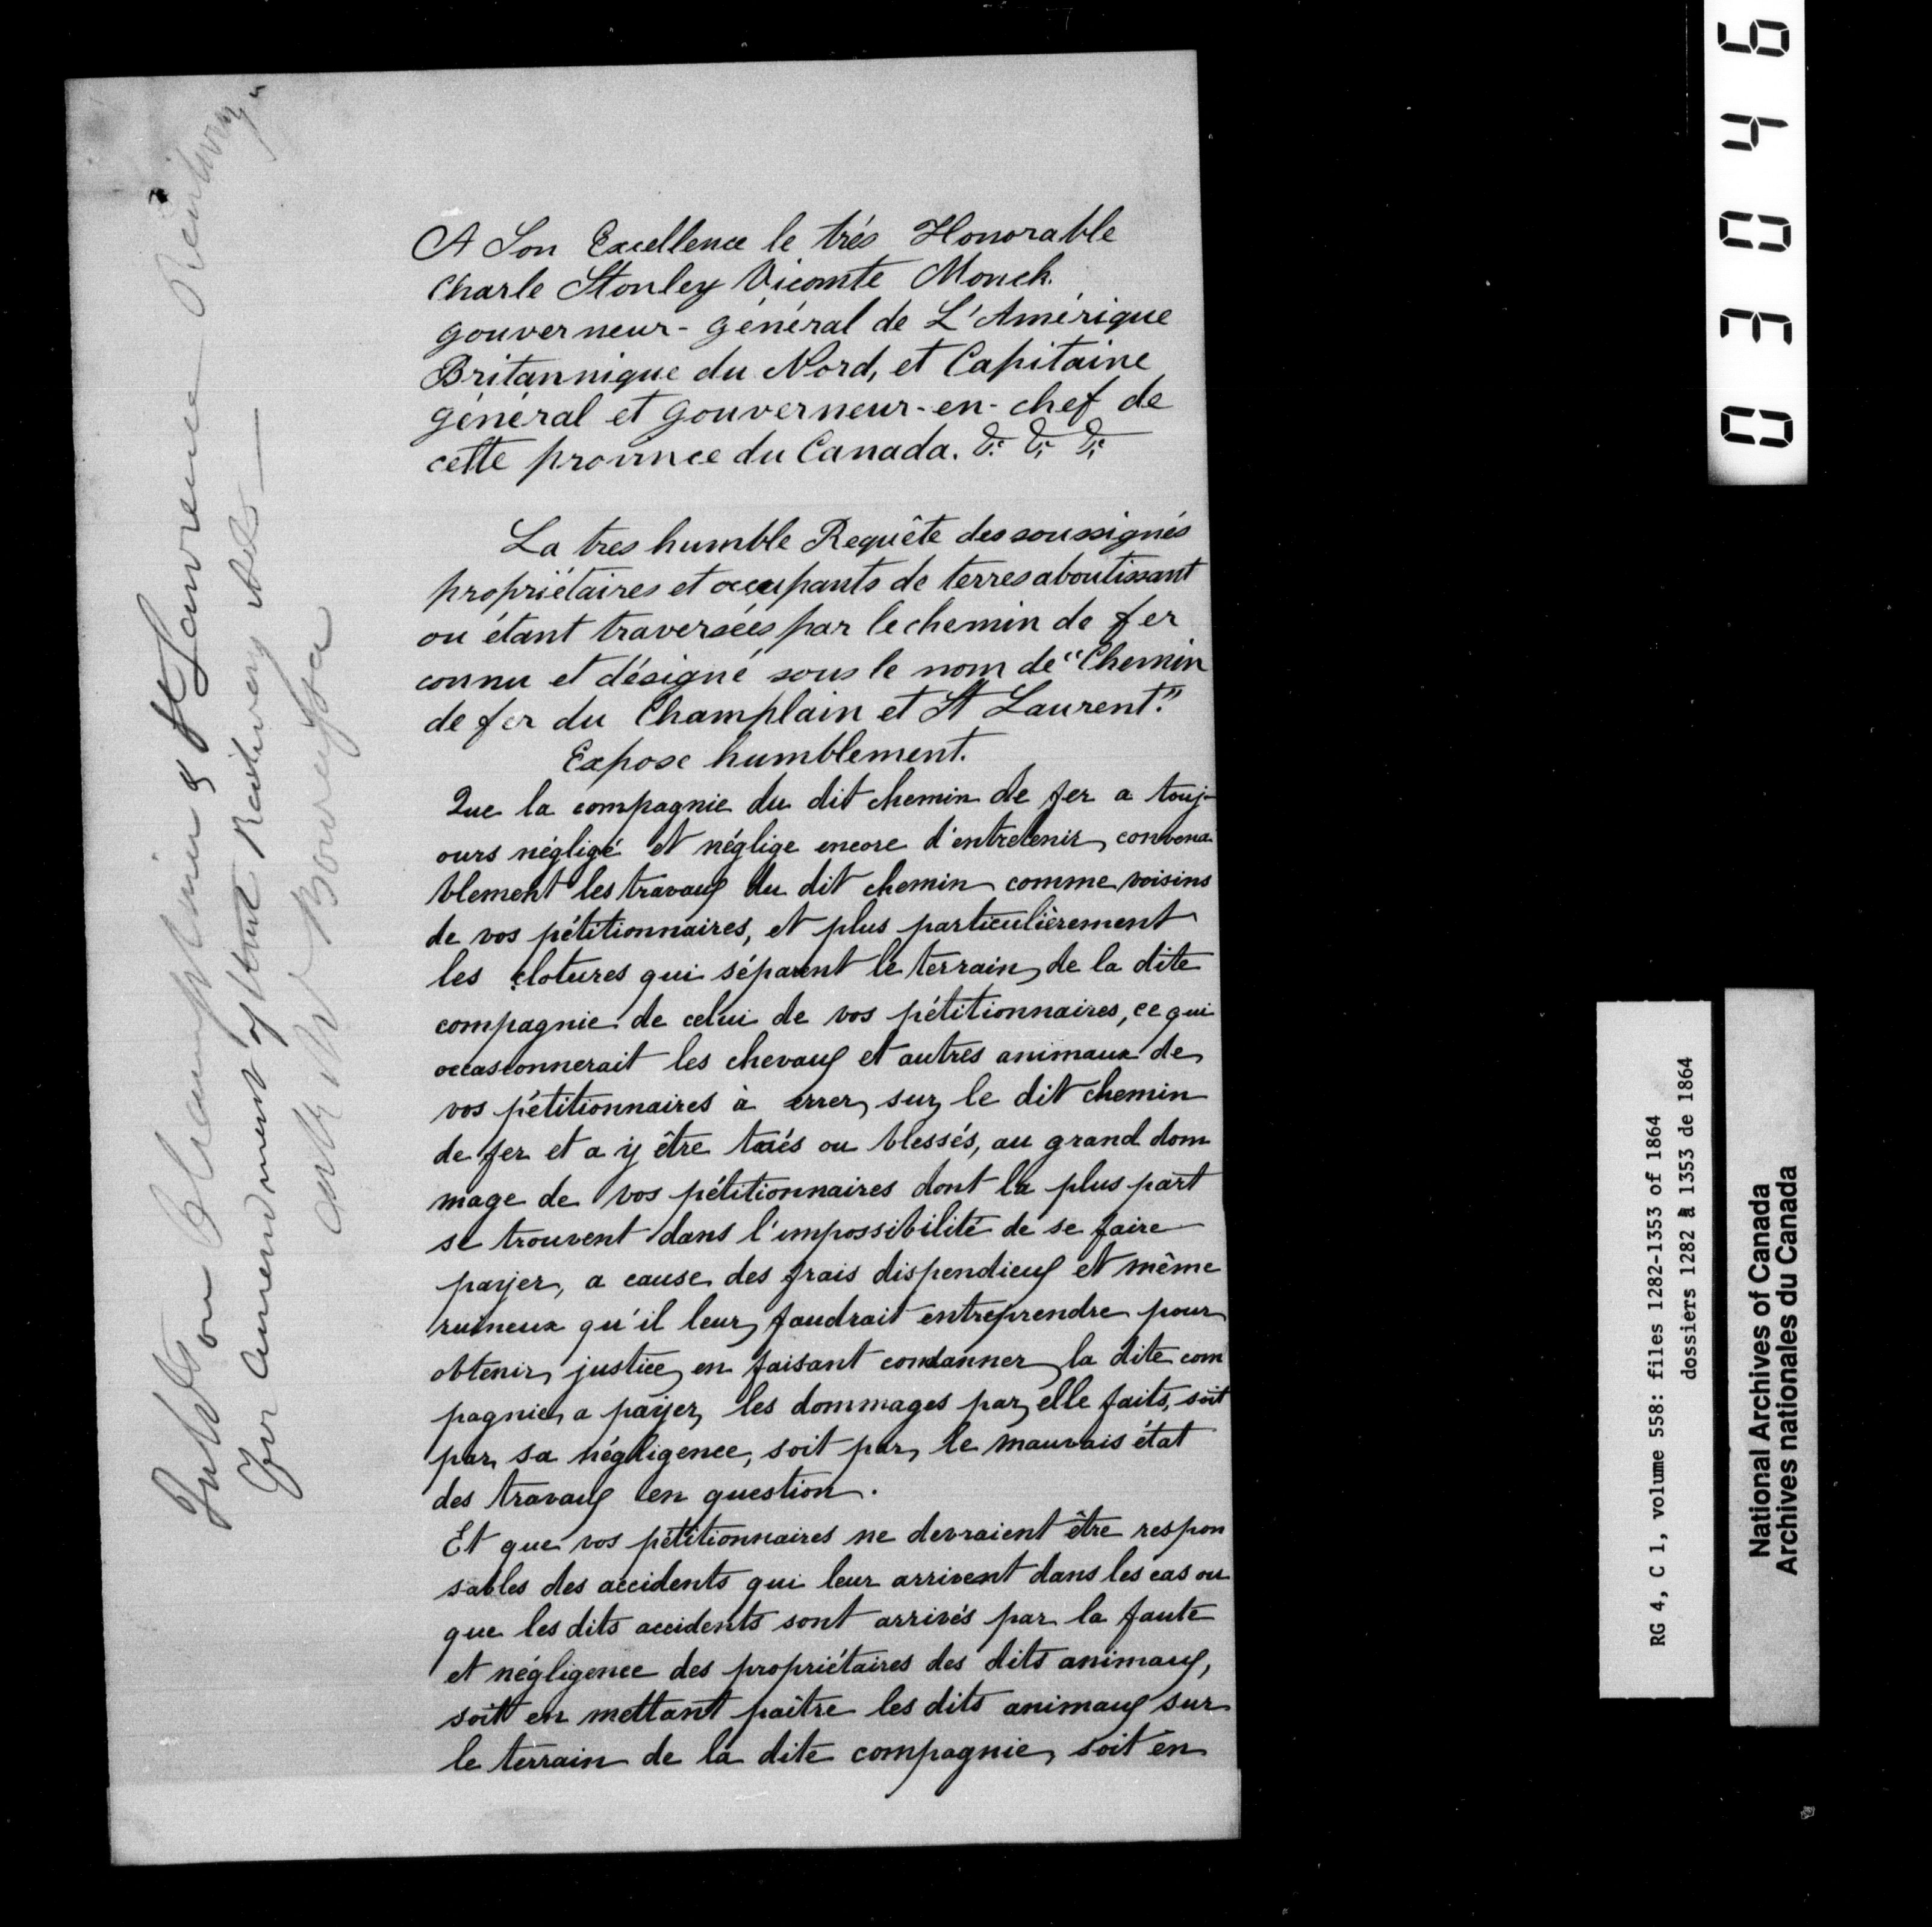 A Son Excellence le trés Honorable
Charle Stonley Vicomte Monck.
gouverneur-général de L'Amérique
Britannique du Nord, et Capitaine
général et gouverneur-en-chef de
cette province du Canada. &c &c &c
La tres humble Requête des soussignés
propriétaires et occupants de terres aboutissant
ou étant traversées par le chemin de fer
connu et désigné sous le nom de "Chemin
de fer du Champlain et St Laurent."
Expose humblement.
Que la compagnie du dit chemin de fer a touj-
ours négligé et néglige encore d'entretenir convena
blement les travaux du dit chemin comme voisins
de vos pétitionnaires, et plus particulièrement
les clotures qui séparent le terrain de la dite
compagnie de celui de vos pétitionnaires, ce qui
occasionnerait les chevaux et autres animaux de
vos pétitionnaires à errer sur le dit chemin
de fer et a y être tués ou blessés, au grand dom
mage de vos pétitionnaires dont la plus part
se trouvent dans l'impossibilité de se faire
payer, a cause des frais dispendieux et même
ruineux qu'il leur faudrait entreprendre pour
obtenir justice en faisant condanner la dite com
pagnie a payer les dommages par elle faits, soit
par sa négligence, soit par le mauvais état
des travaux en question.
Et que vos pétitionnaires ne devraient être respon
sables des accidents qui leur arrivent dans les cas ou
que les dits accidents sont arrivés par la faute
et négligence des propriétaires des dits animaux,
soit en mettant paître les dits animaux sur
le terrain de la dite compagnie, soit en
Champlain & St Lawrence
For Amendment of their Railway Act
0 3 0 4 6
RG 4, C 1, volume 558: files 1282-1353 of 1864
dossiers 1282 à 1353 de 1864
National Archives of Canada
Archives nationales du Canada